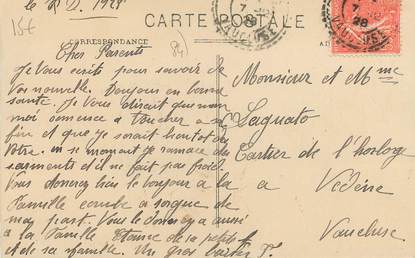 le 12 D. 1928
15€
CARTE POSTALE
CORRESPONDANCE
84)
VAUCLUSE
7
28
VAUCLUSE
Cher Parents
Je vous ecrit pour savoir de
Vos nouvelle. Toujours en bonne
sante. Je Vous dirait que mon
moi comence a toucher a sa
fin et que je serait bientot des
Votre. en se moment je ramace des
sarments d'il ne fait pas froid.
Vous donnerez bien le bonjour a la
Famille a sorgue de
may part. Vous le donnerez aussi
a la Famille de sa petite
et de sa famille. Un gros
Monsieur et Mme
Laguato
Cartier de l'horloge
a Vedène
Vaucluse